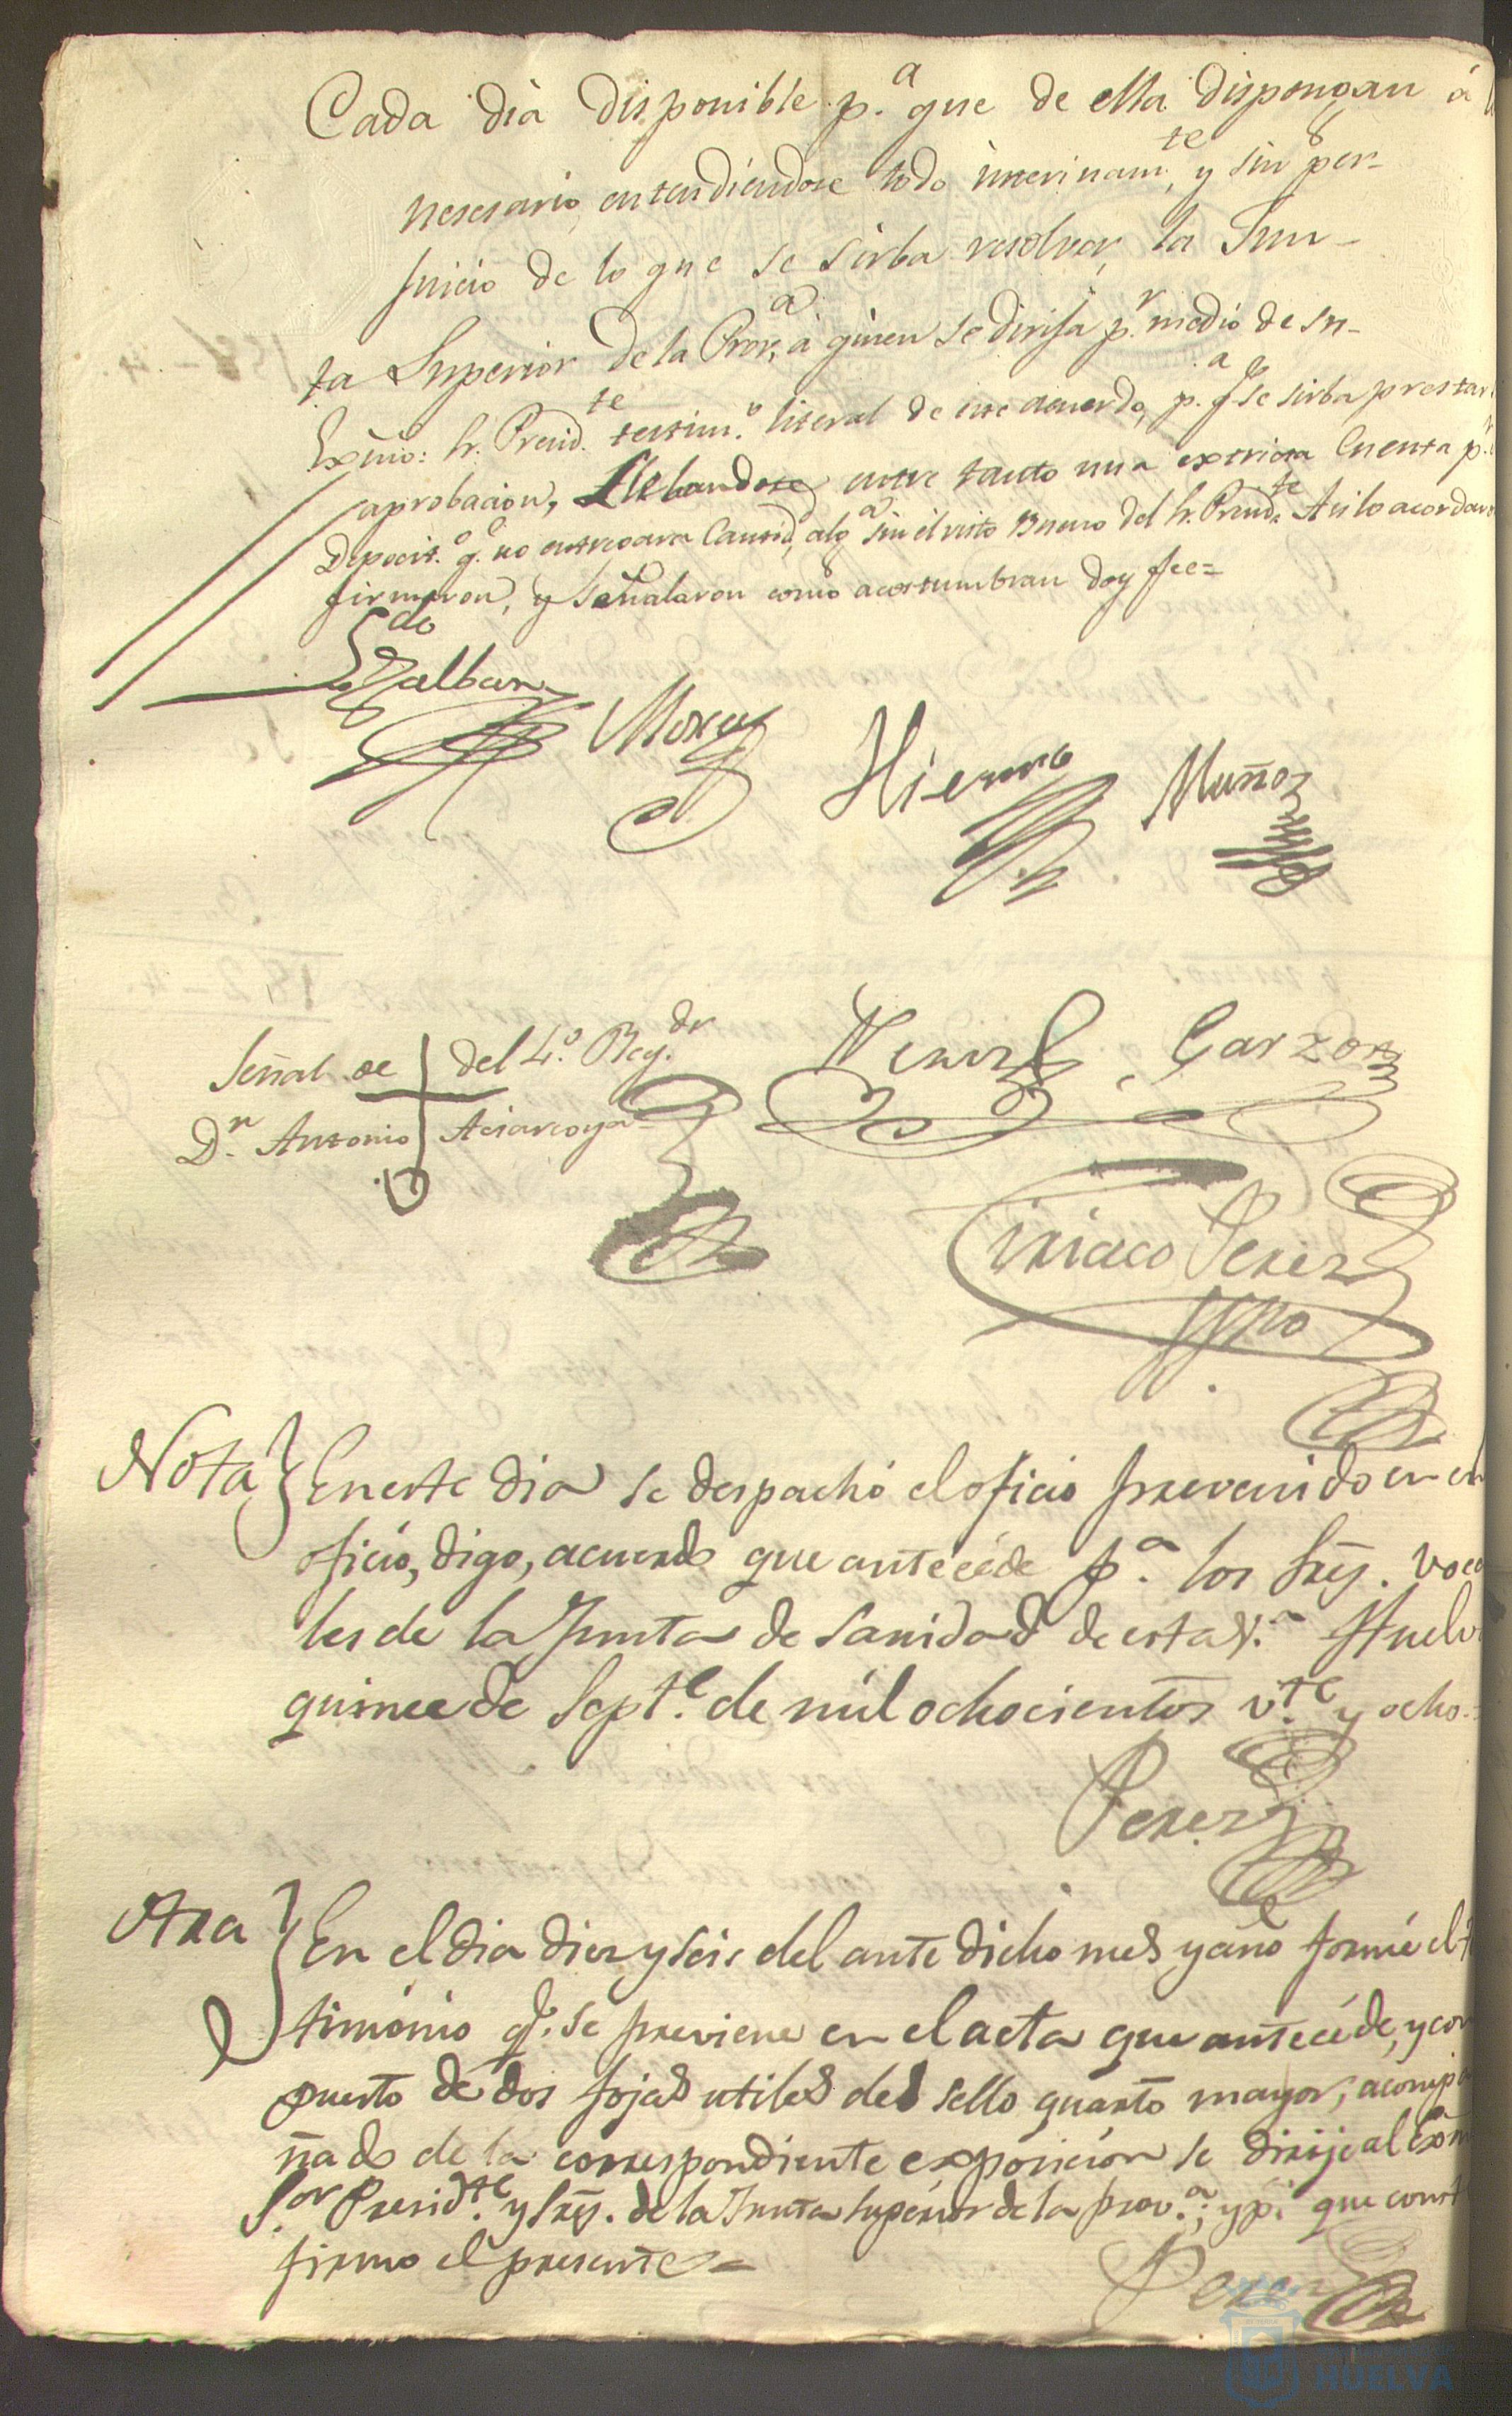 Cada dia disponible p.ª que de ella dispongan á
nesesario, entendiendose todo interinam.te, y sin per-
juicio de lo que se sirba resolver la Jun-
ta Superior de la Prov.ª, á quien se dirija p.r medio de su
Exmo: Sr. Presid.te testim.º literal de este acuerdo, p.ª q.e se sirba prestar
aprobacion, llebandose entre tanto una extricta Cuenta p.r
Deposit.º q.e no entregara Cantid.d alg.ª sin el visto Bueno del Sr. Presid.te Asi lo acordaron
firmaron, y señalaron como acostumbran doy fee=
Ldo
Zalban
Mora
Hierro
Muñoz
Señal de del 4.º Reg.dr
D.n Antonio
Perez
Garzon
Ciriaco Perez
Nota} En este dia se despachó el oficio prevenido en el
oficio, digo, acuerdo que antecéde p.ª los Sres. voca
les de la Junta de Sanidad de esta V.ª Huelv
quince de Sept.e de mil ochocientos v.te y ocho.=
Perez
Otra} En el dia diez y seis del ante dicho mes y año formé el t
timonio q.e se previene en el acta que antecéde, y com
puesto de dos fojas utiles del sello quarto mayor, acompa
ñado de la correspondiente exposicion se dirije al Exm
S.or Presid.te y Sres. de la Junta Superior de la prov.ª; y p.ª que const
firmo el presente=
Perez
HUELVA